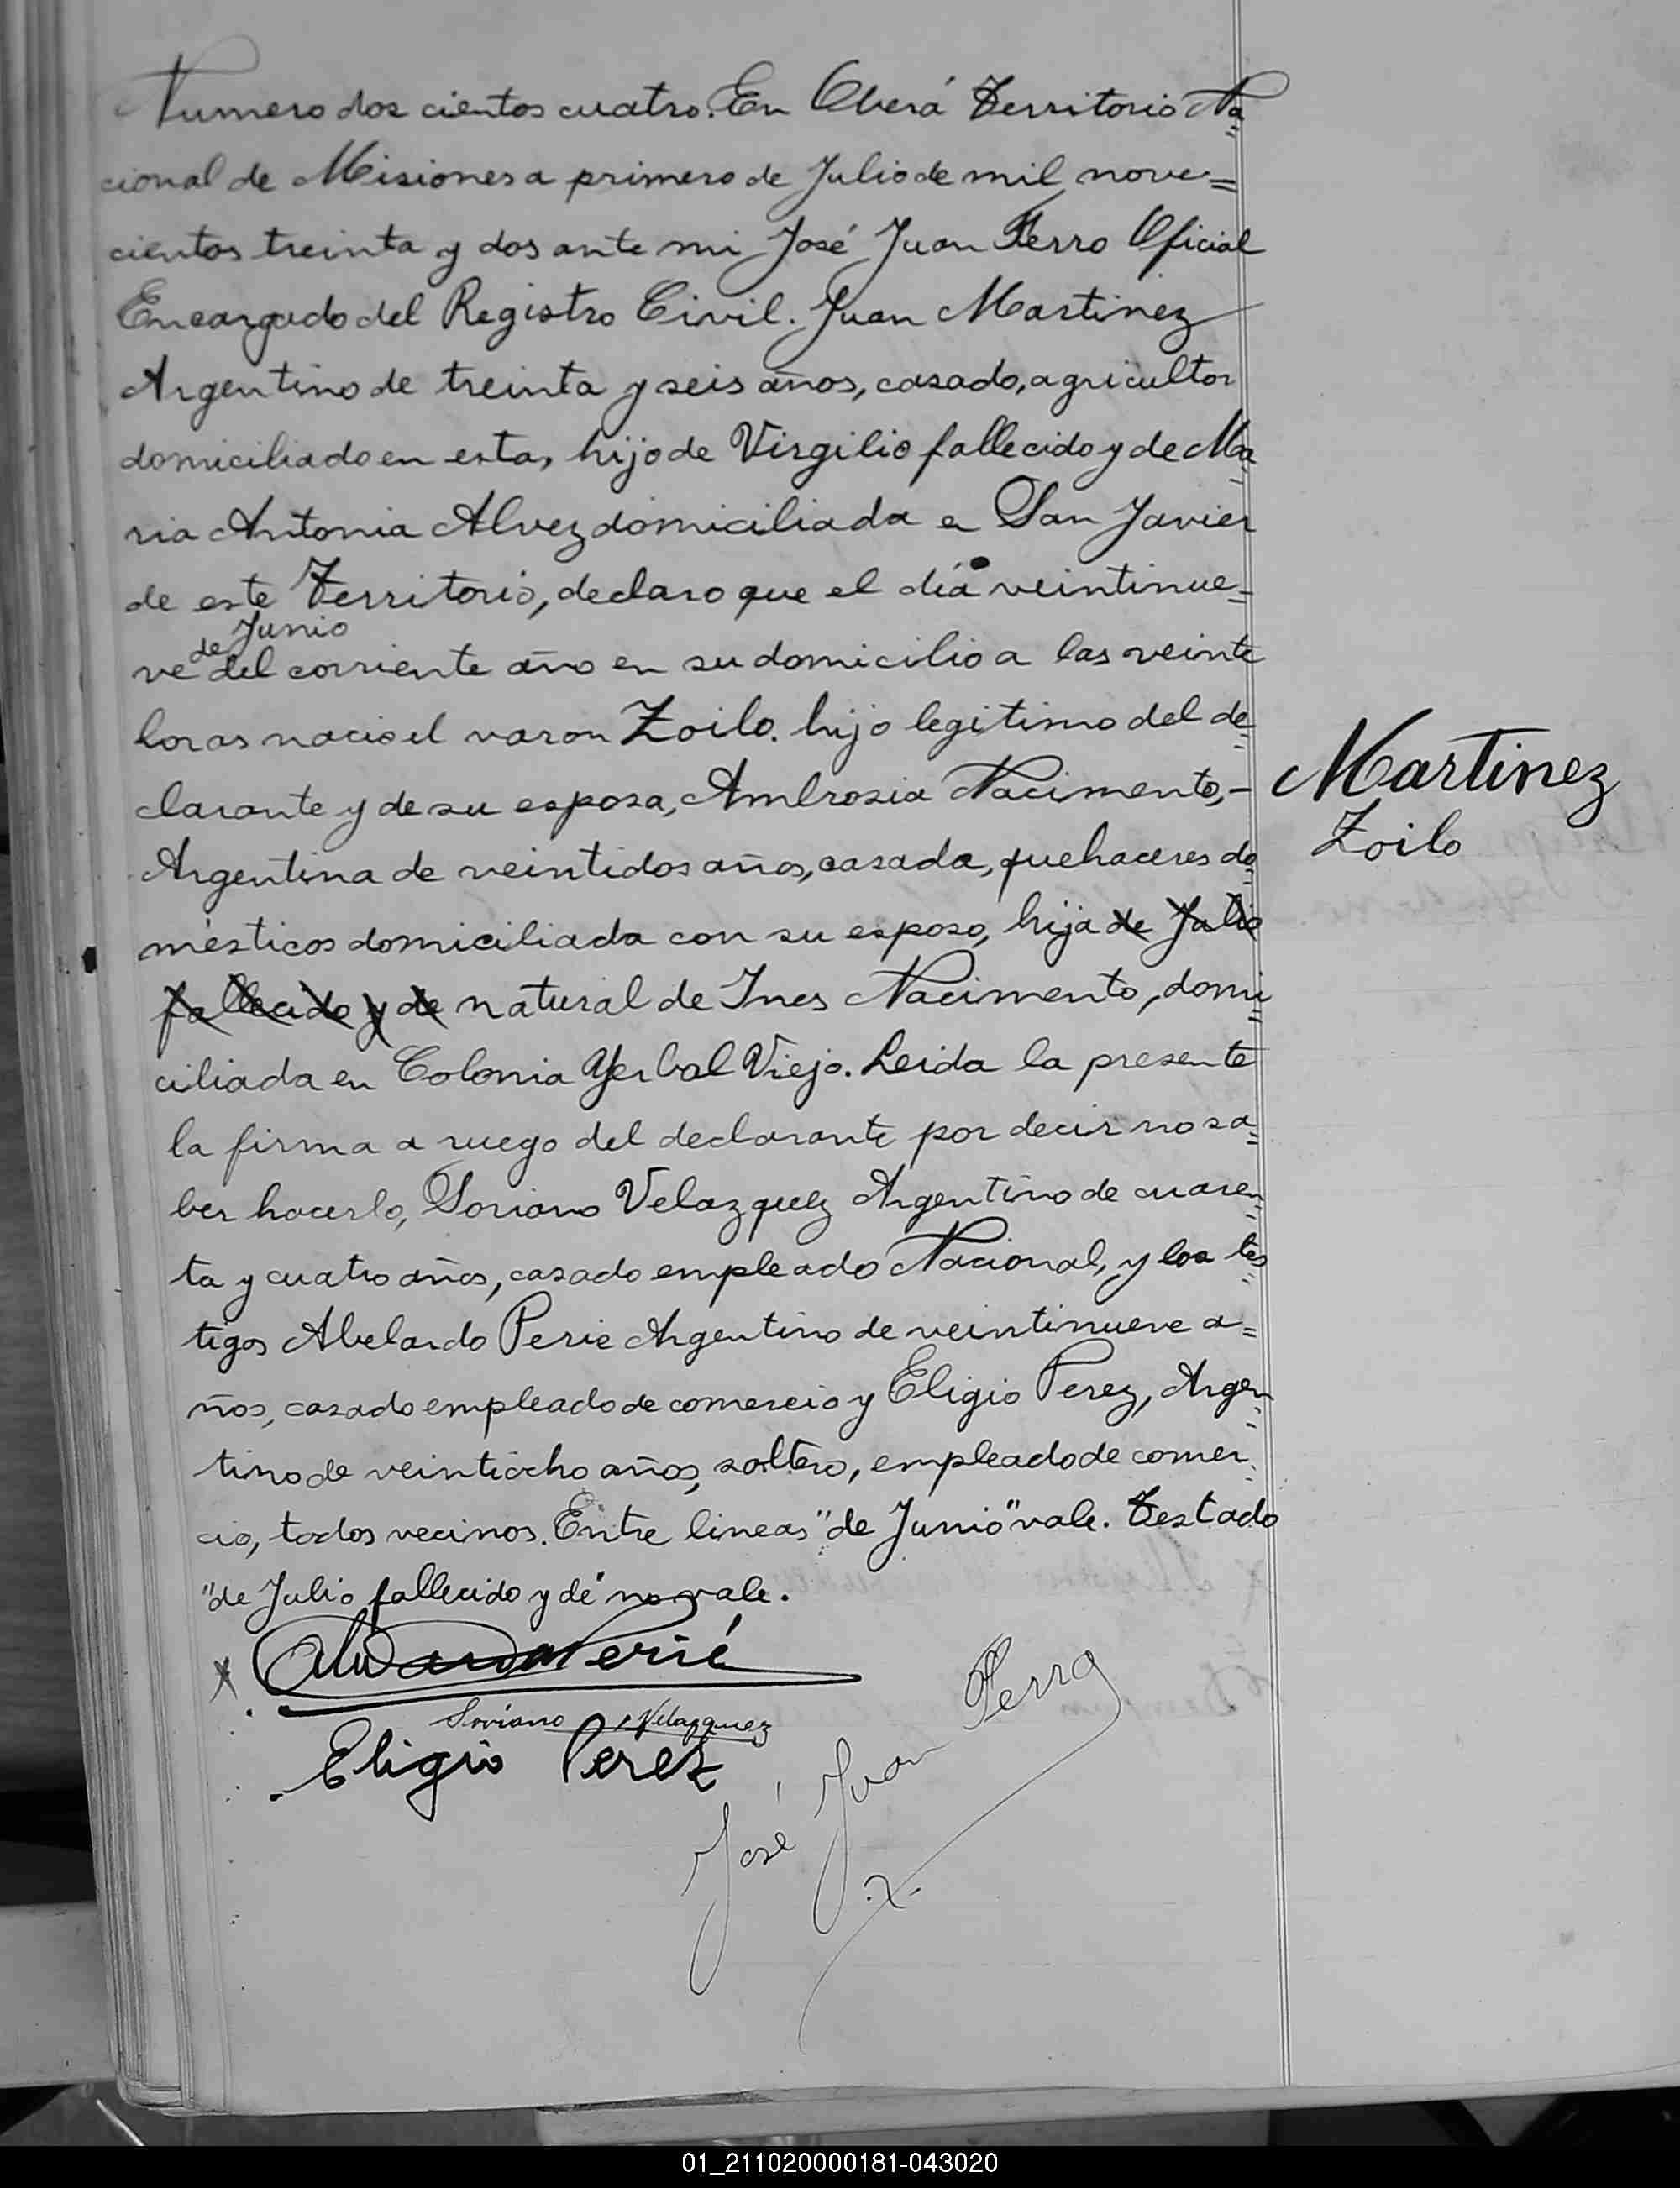 Numero dos cientos cuatro. En Oberá Territorio Na=
cional de Misiones a primero de Julio de mil nove=
cientos treinta y dos ante mi José Juan Ferro Oficial
Encargado del Registro Civil. Juan Martinez
Argentino de treinta y seis años, casado, agricultor
domiciliado en esta, hijo de Virgilio fallecido y de Ma=
ria Antonia Alvez domiciliada e San Javier
de este Territorio, declaro que el día veintinue=
de Junio
ve del corriente año en su domicilio a las veinte
horas nacio el varon Zoilo. hijo legitimo del de=
clarante y de su esposa, Ambrosia Nacimento,-
Martinez
Zoilo
Argentina de veintidos años, casada, quehaceres do=
mésticos domiciliada con su esposo, hija de Julio
fallecido y de natural de Ines Nacimento, domi=
ciliada en Colonia Yerbal Viejo. Leida la presente
la firma a ruego del declarante por decir no sa=
ber hacerlo, Soriano Velazquez Argentino de cuaren=
ta y cuatro años, casado empleado Nacional, y los tes=
tigos Abelardo Perie Argentino de veintinueve a=
ños, casado empleado de comercio y Eligio Perez, Argen=
tino de veintiocho años, soltero, empleado de comer=
cio, todos vecinos. Entre lineas "de Junio" vale. Testado
"de Julio fallecido y de" no vale.
Abelardo Perié
Soriano Velazquez
Eligio Perez
José Juan Ferro
01_211020000181-043020